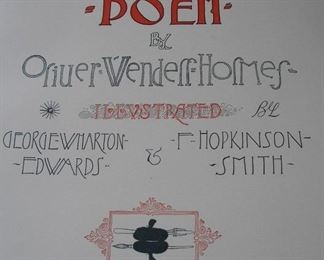 -POEM-
BY
Oliver·Wendell·Holmes·
ILLVSTRATED BY
GEORGE·WHARTON- & -F-HOPKINSON-
-EDWARDS- SMITH-